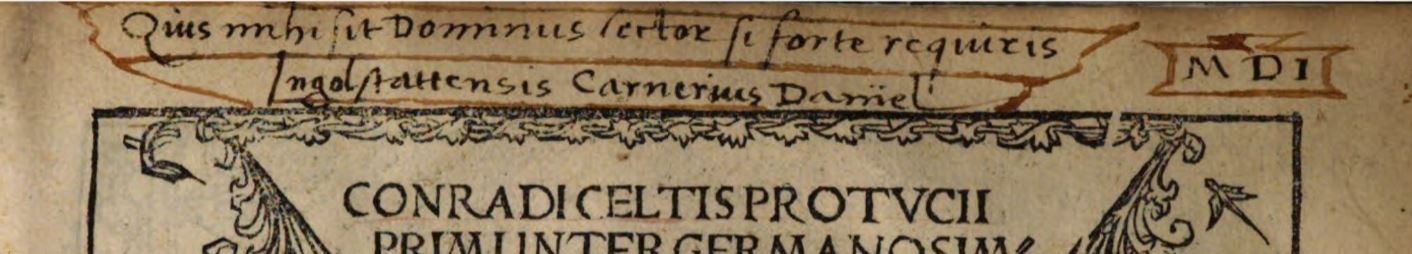 Qius mihi sit Dominus lector si forte requiris
M D I
Ingolstattensis Carnerius Daniel
CONRADI CELTIS PROTVCII
PRIMI INTER GERMANOS IM